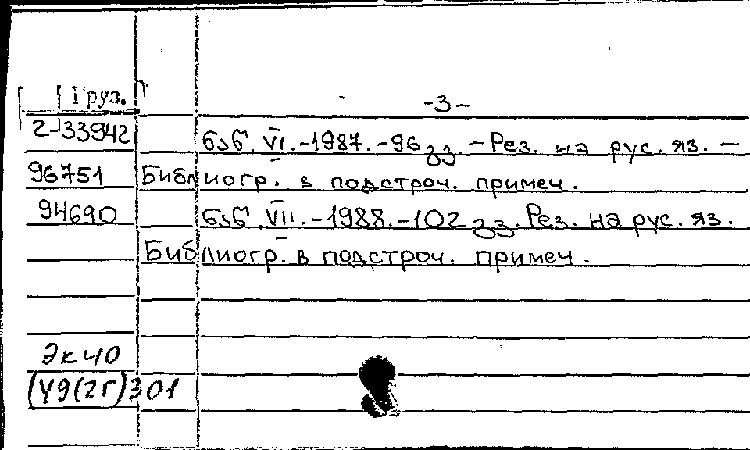 1 груз.
-3-
2-33942
ნაწ. VI. -1987. -96 გვ. - Рез. на рус. яз. -
96751 Библиогр. в подстроч. примеч.
94690 ნაწ. VII. -1988. -102 გვ. Рез. на рус. яз.
Библиогр. в подстроч. примеч.
Эк 40
(У9(2Г)301